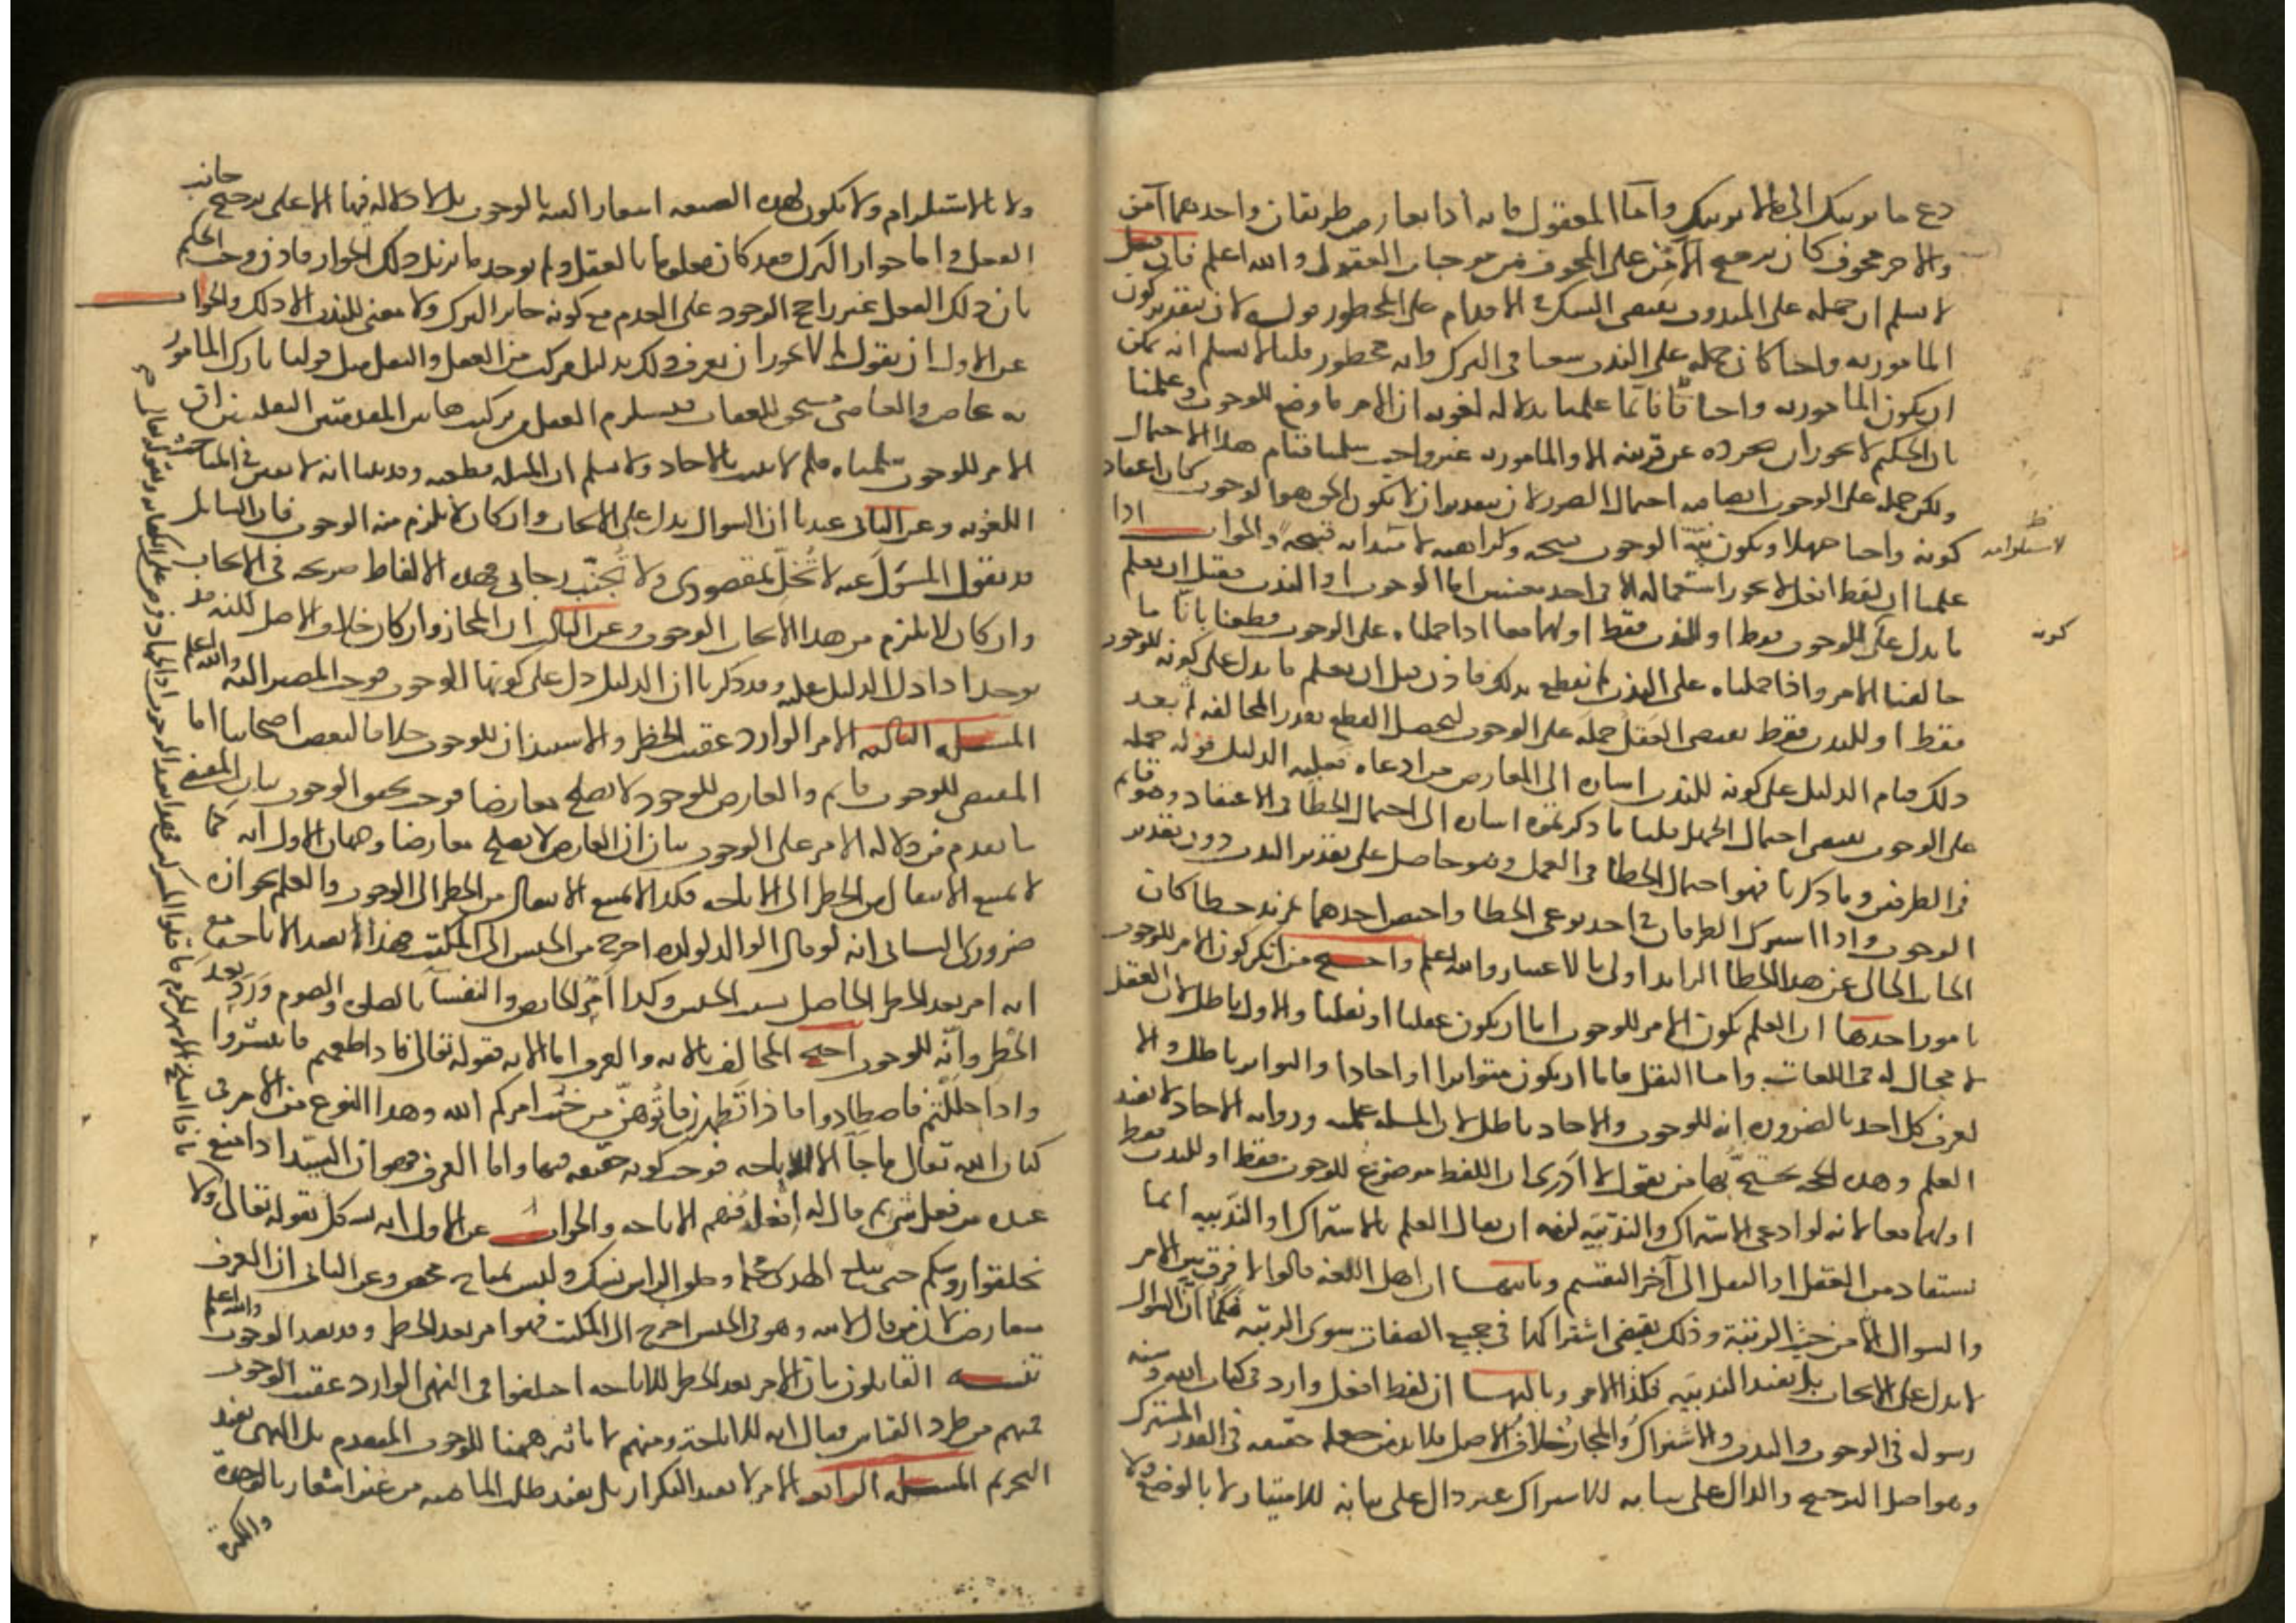 دع ما يريبك إلى ما لا يريبك وأما المعقول فإنه إذا تعارض طريقان واحدهما آمن
والآخر مخوف كان ترجيح الآمن على المخوف من موجبات العقول والله أعلم فإن قيل
لا نسلم أن حمله على المندوب يقتضي الشك في الإقدام على المحظور قوله لأن بتقدير كون
المأمور به واجبا كان حمله على الندب سعيا في الترك وإنه محظور قلنا لا نسلم أنه يمكن
أن يكون المأمور به واجبا فإنا لما علمنا بدلالة لغوية أن الأمر ما وضع للوجوب وعلمنا
بأن الحكيم لا يجوز أن يجرده عن قرينة إلا والمأمور به غير واجب سلمنا قيام هذا الاحتمال
ولكن حمله على الوجوب أيضا فيه احتمال الضرر لأن بتقدير أن لا يكون الحق هو الوجوب كان اعتقاد
كونه واجبا جهلا ويكون نية الوجوب قبيحة وكراهية قبيحة والجواب إذا
علمنا أن لفظ افعل لا يجوز استعماله إلا في أحد معنيين إما الوجوب أو الندب فقبل أن يعلم
ما يدل على الوجوب فقط أو الندب فقط أو لهما معا إذا حملناه على الوجوب قطعنا بأنا ما
خالفنا الأمر وإذا حملناه على الندب لم نقطع بذلك فإذن قبل أن يعلم ما يدل على كونه للوجوب
فقط أو للندب فقط يقتضي العقل حمله على الوجوب ليحصل القطع بعدم المخالفة ثم بعد
ذلك قيام الدليل على كونه للندب إشارة إلى المعارض من ادعاه فعليه الدليل قوله حمله
على الوجوب يقتضي احتمال الجهل قلنا ما ذكرتموه إشارة إلى احتمال الخطأ في الاعتقاد وهو قائم
في الطرفين وما ذكرنا فهو احتمال الخطأ في العمل وهو حاصل على تقدير الندب دون تقدير
الوجوب وإذا اشترك الطرفان في أحد نوعي الخطأ واختص أحدهما بمزيد خطأ كان
الجانب الخالي عن هذا الخطأ الزائد أولى بالاعتبار والله أعلم واحتج من أنكر كون الأمر للوجوب
بأمور أحدها أن العلم بكون الأمر للوجوب إما أن يكون عقليا أو نقليا والأول باطل لأن العقل
لا مجال له في اللغات وأما النقل فإما أن يكون متواترا أو آحادا والتواتر باطل وإلا
لعرف كل أحد بالضرورة أنه للوجوب والآحاد باطل لأن المسألة علمية ورواية الآحاد لا تفيد
العلم وهذه الحجة يحتج بها من يقول لا أدري أن اللفظ موضوع للوجوب فقط أو للندب فقط
أو لهما معا لأنه لو ادعى الاشتراك والندبية لزمه أن يقال العلم بالاشتراك أو الندبية إنما
يستفاد من العقل أو النقل إلى آخر التقسيم وثانيها أن أهل اللغة قالوا لا فرق بين الأمر
والسؤال إلا من حيث الرتبة وذلك يقتضي اشتراكهما في جميع الصفات سوى الرتبة فكما أن السؤال
لا يدل على الإيجاب بل يفيد الندبية فكذا الأمر وثالثها أن لفظ افعل وارد في كتاب الله وسنة
رسوله في الوجوب والندب والاشتراك والمجاز خلاف الأصل فلا بد من جعله حقيقة في القدر المشترك
وهو أصل الترجيح والدال على ما به الاشتراك غير دال على ما به الامتياز لا بالوضع ولا
كونه
ولا بالاستلزام ولا يكون لهذه الصيغة إشعار البتة بالوجوب بل لا دلالة فيها إلا على ترجيح جانب
الفعل وأما جواز الترك فقد كان معلوما بالعقل ولم يوجد ما يزيل ذلك الجواز فإذن وجب الحكم
بأن ذلك الفعل راجح الوجود على العدم مع كونه جائز الترك ولا معنى للندب إلا ذلك والجواب
عن الأول أن نقول لم لا يجوز أن نعرف ذلك بدليل مركب من العقل والنقل مثل قولنا تارك المأمور
به عاص والعاصي مستحق للعقاب فيستلزم العقل من تركيب هاتين المقدمتين النقليتين أن
الأمر للوجوب سلمناه فلم لا يثبت بالآحاد ولا نسلم أن المسألة قطعية وقد بينا أنه لا يقين في المباحث
اللغوية وعن الثاني عندنا أن السؤال يدل على الإيجاب وإن كان لا يلزم منه الوجوب فإن السائل
قد يقول للمسؤول عنه لا تخل بمقصودي ولا تخيب رجائي فهذه الألفاظ صريحة في الإيجاب
وإن كان لا يلزم من هذا الإيجاب الوجوب وعن الثالث أن المجاز وإن كان خلاف الأصل لكنه قد
يوجد إذا دل الدليل عليه وقد ذكرنا أن الدليل دل على كونها للوجوب فوجب المصير إليه والله أعلم
المسألة الثالثة الأمر الوارد عقيب الحظر والاستئذان للوجوب خلافا لبعض أصحابنا لنا
المقتضي للوجوب قائم والعارض للوجود لا يصلح معارضا فوجب تحقق الوجوب بيان المقتضي
ما تقدم من دلالة الأمر على الوجوب بيان أن العارض لا يصلح معارضا وجهان الأول أنه كما
لا يمتنع الانتقال من الحظر إلى الإباحة فكذا لا يمتنع الانتقال من الحظر إلى الوجوب والعلم بجوازه
ضروري الثاني أنه لو قال الوالد لولده اخرج من الحبس إلى المكتب فهذا لا يفيد الإباحة مع
أنه أمر بعد الحظر الحاصل بسبب الحبس وكذا أمر الحائض والنفساء بالصلوة والصوم ورد بعد
الحظر وأنه للوجوب احتج المخالف بالآية والعرف أما الآية فقوله تعالى فإذا طعمتم فانتشروا
وإذا حللتم فاصطادوا فإذا تطهرن فأتوهن من حيث أمركم الله وهذا النوع من الأمر في
كتاب الله تعالى ما جاء إلا للإباحة فوجب كونه حقيقة فيها وأما العرف فهو أن السيد إذا منع
عبده من فعل شيء ثم قال له افعله فهم الإباحة والجواب عن الأول أنه يشكل بقوله تعالى ولا
تحلقوا رؤسكم حتى يبلغ الهدي محله وحلق الرأس نسك وليس بمباح محض وعن الثاني أن العرف
معارض لأن من قال لابنه وهو في الحبس اخرج إلى المكتب فهو أمر بعد الحظر وقد يفيد الوجوب والله أعلم
تنبيه القائلون بأن الأمر بعد الحظر للإباحة اختلفوا في النهي الوارد عقيب الوجوب
فمنهم من طرد القياس فقال إنه للإباحة ومنهم لا تأثير ههنا للوجوب المتقدم بل النهي يفيد
التحريم المسألة الرابعة الأمر لا يفيد التكرار بل يفيد طلب الماهية من غير إشعار بالوحدة
والكثرة